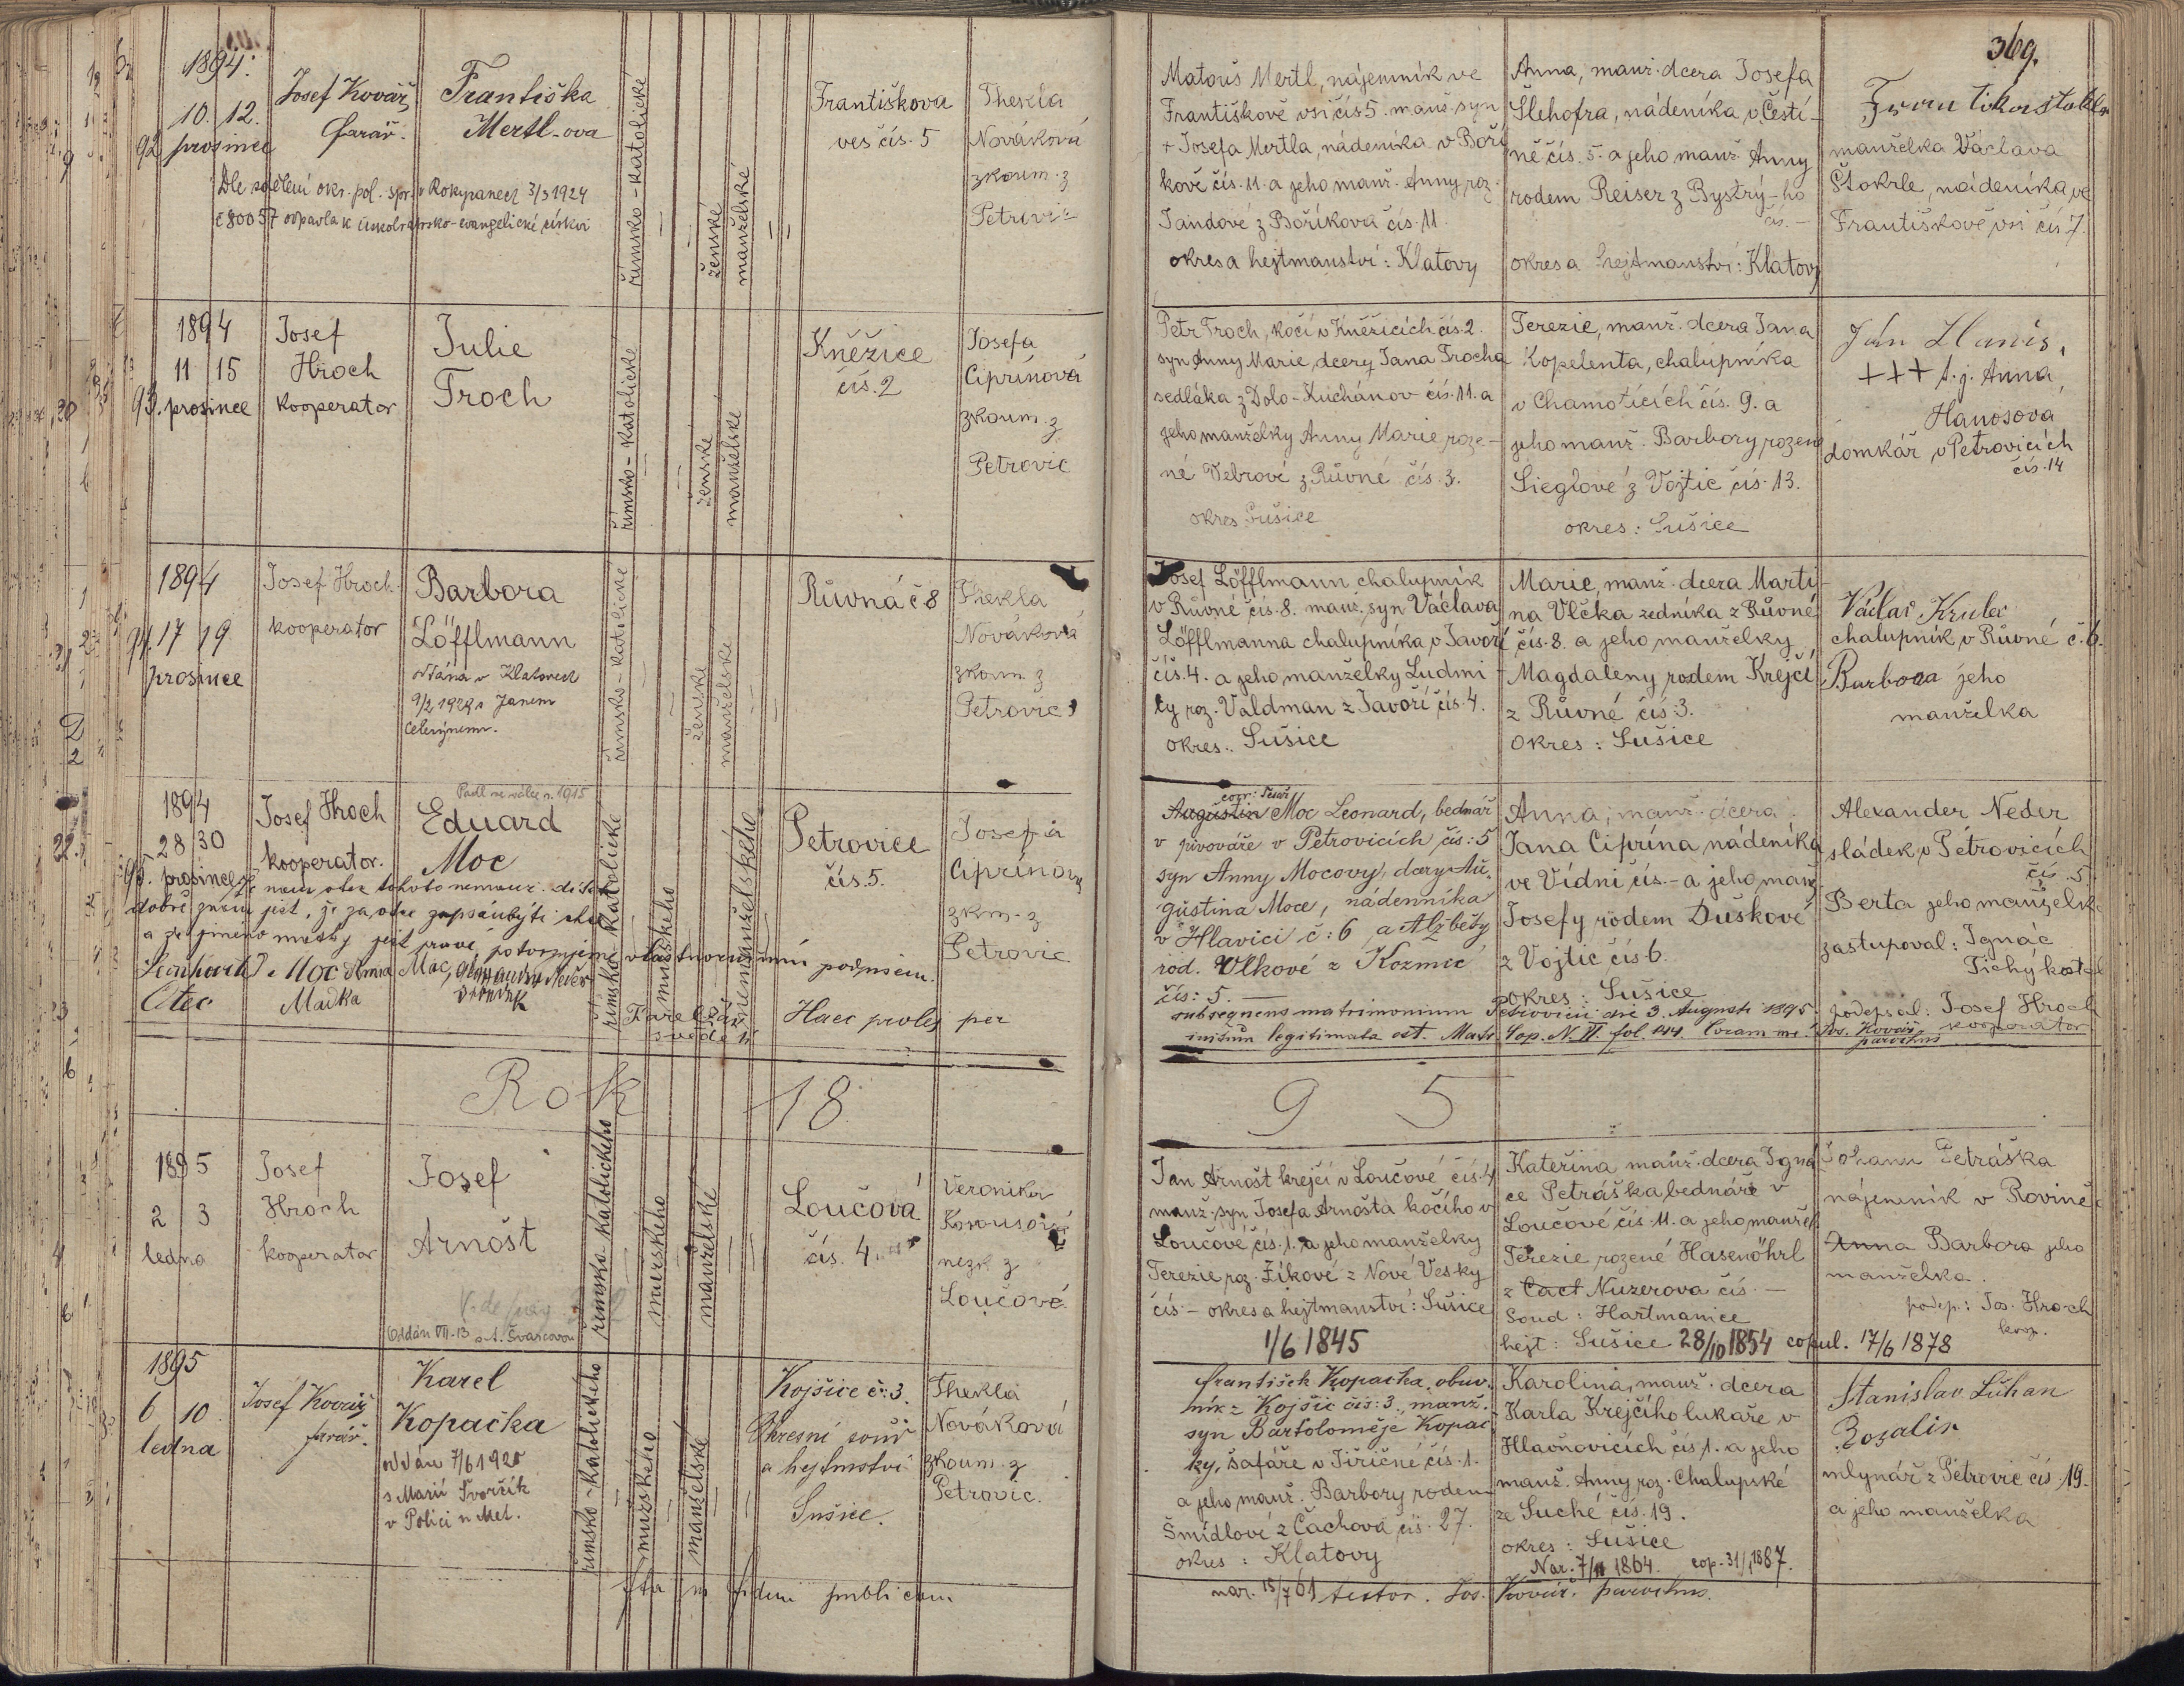 369.
1894.
10. 12.
92 prosince
Josef Kovář
farář.
Františka
Mertl-ova
Dle sdělení okr. pol. spr. v Rokycanech 3/3 1924
č 80057 odpadla k
římsko-katolické
ženské
manželské
Františkova
ves čís. 5
Thekla
Nováková
zkoum. z
Petrovic
Matouš Mertl, nájemník ve
Františkově vsi čís 5. manž. syn
+ Josefa Mertla, nádeníka v Boří
kově čís. 11. a jeho manž. Anny roz.
Jandové z Boříkova čís. 11
okres a hejtmanství: Klatovy
Anna, manž. dcera Josefa
Šlehofra, nádeníka v Čestí-
ně čís. 5. a jeho manž. Anny
rodem Reiser z Bystrý-ho
čís. —
okres a hejtmanství: Klatovy
manželka Václava
Štokrle, nádeníka ve
Františkově vsi čís 7.
1894
11 15
93. prosince
Josef
Hroch
kooperator
Julie
Troch
římsko-katolické
ženské
manželské
Kněžice
čís. 2
Josefa
Ciprínová
zkoum. z
Petrovic
Petr Troch, kočí v Kněžicích čís. 2.
syn Anny Marie, dcery Jana Trocha
sedláka z Dolo-Kuchánov čís. 11. a
jeho manželky Anny Marie roze-
né Vebrové z Růvné čís. 3.
okres Sušice
Terezie, manž. dcera Jana
Kopelenta, chalupníka
v Chamoticích čís. 9. a
jeho manž. Barbory rozené
Sieglové z Vojtic čís. 13.
okres: Sušice
+++ t. j. Anna
Hanosová
domkář v Petrovicích
čís. 14
1894
94. 17 19
prosince
Josef Hroch
kooperator
Barbora
Löfflmann
oddána v Klatovech
s Janem
římsko-katolické
ženské
manželské
Růvná č 8
Thekla
Nováková
zkoum z
Petrovic
Josef Löfflmann chalupník
v Růvné čís. 8. manž. syn Václava
Löfflmanna chalupníka v Javoří
čís. 4. a jeho manželky Ludmi-
ly roz. Valdman z Javoří čís. 4.
okres: Sušice
Marie, manž. dcera Marti-
na Vlčka zedníka z Růvné
čís. 8. a jeho manželky
Magdaleny rodem Krejčí
z Růvné čís. 3.
Okres: Sušice
Václav
chalupník v Růvné č. 6.
Barbora jeho
manželka
1894
28 30
95. prosince
Josef Hroch
kooperator.
Padl ve válce r. 1915
Eduard
Moc
dobře znám jest, že za otce zapsán býti chce
a že jméno matky jest pravé, potvrzujeme vlastnoručním podpisem.
Otec
Matka
římsko katolické
mužského
nemanželského
svědek
Petrovice
čís. 5.
Josefa
Ciprínová
zkm. z
Petrovic
Haec proles per
Augustin Moc Leonard, bednář
v pivováře v Petrovicích čís: 5
syn Anny Mocovy, dcery Au-
gustina Moce, nádenníka
v Hlavici č: 6 a Alžběty
rod. Vlkové z Kozmic
čís: 5. —
subsequens matrimonium Petrovicii die 3. Augusti 1895
initum legitimata est. Matr. Cop. N. VI. fol. 144. Coram me: Jos. Kovář
parochus
Anna, manž. dcera
Jana Ciprína nádeníka
ve Vídni čís. — a jeho manž
Josefy rodem Duškové
z Vojtic čís 6.
okres: Sušice
Alexander Neder
sládek v Petrovicích
čís. 5.
Berta jeho manželka
zastupoval: Ignác
Tichý kostel
podepsal: Josef Hroch
kooperator
Rok 18 9 5
1895
2 3
ledna
Josef
Hroch
kooperator
Josef
Arnošt
Oddán VII-13 s A. Švarcovou
římsko katolického
mužského
manželské
Loučová
čís. 4
Veronika
Korousová
nezk z
Loučové
Jan Arnošt krejčí v Loučové čís. 4
manž. syn Josefa Arnošta kočího v
Loučové, čís. 1. a jeho manželky
Terezie roz. Žíkové z Nové Vesky
čís — okres a hejtmanství: Sušice
1/6 1845
Kateřina manž. dcera Igná
ce Petráška, bednáře v
Loučové čís. 11. a jeho manžel
Terezie rozené Hasenöhrl
z Nuzerova čís. —
Soud: Hartmanice
hejt: Sušice 28/10 1854 copul. 17/6 1878
Johann Petráška
nájemník v Rovině
Anna Barbora jeho
manželka.
podep.: Jos. Hroch
koop.
1895
6 10
ledna
Josef Kovář
farář.
Karel
Kopačka
oddán 7/6 1920
s Marií Tvorzik
v Polici n Met.
římsko-katolického
mužského
manželské
Kojšice č: 3.
Okresní soud
a hejtmství
Sušice.
Thekla
Nováková
zkoum. z
Petrovic.
František Kopačka, obuv-
ník z Kojšic čís: 3., manž.
syn Bartoloměje Kopač
ky, šafáře v Jiřičné čís. 1.
a jeho manž. Barbory rodem
Šmídlové z Čachova čís. 27.
okres: Klatovy
nar. 15/7 61
Karolina, manž. dcera
Karla Krejčího lukaře v
Hlavňovicích čís. 1. a jeho
manž. Anny roz. Chalupské
ze Suché čís. 19.
okres: Sušice
Nar. 7/11 1864. cop. 31/1 1887.
Stanislav Luhan
Rozalie
mlynář z Petrovic čís. 19.
a jeho manželka
Ita in fidem publicam testor. Jos. Kovář. parochus.